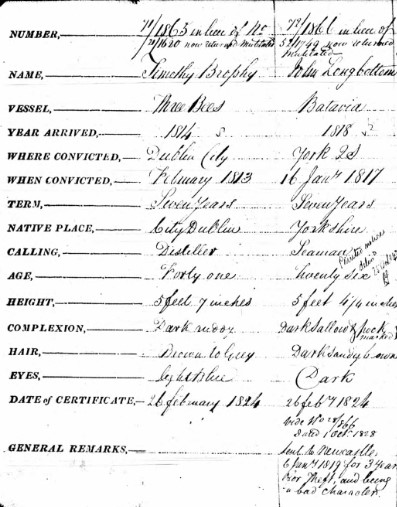 NUMBER, 71/1863 in lieu of No 72/1866 in lieu of
now returned mutilated now returned mutilated
NAME, Timothy Brophy John Longbottom
VESSEL, Three Bees Batavia
YEAR ARRIVED, 1814 1818
WHERE CONVICTED, Dublin City York
WHEN CONVICTED, February 1813 16 Jany 1817
TERM, Seven Years Seven Years
NATIVE PLACE, City Dublin Yorkshire
CALLING, Distiller Seaman
AGE, Forty one Twenty Six
HEIGHT, 5 feet 7 inches 5 feet inches
COMPLEXION, Dark ruddy Dark Sallow & pock marked
HAIR, Brown to Grey Dark Sandy brown
EYES, Light Blue Dark
DATE of CERTIFICATE, 26 february 1824 26 feby 1824
vide No /866
dated 1 Oct. 1828
GENERAL REMARKS, Sent to Newcastle
6 Jany 1819 for 3 Years
for Theft, and being
a bad character